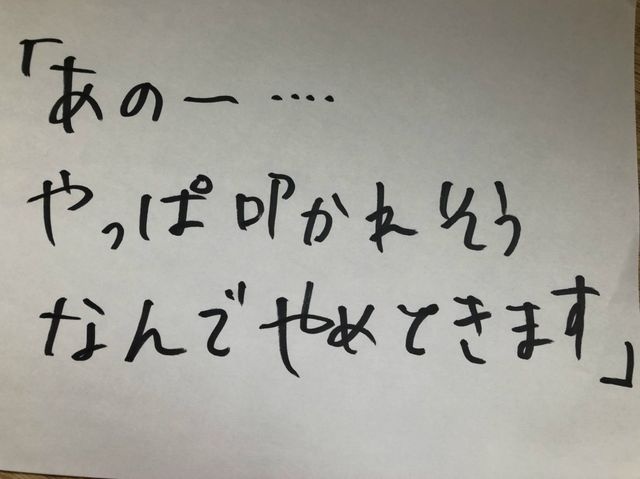 「あのー‥‥
やっぱ叩かれそう
なんでやめときます」